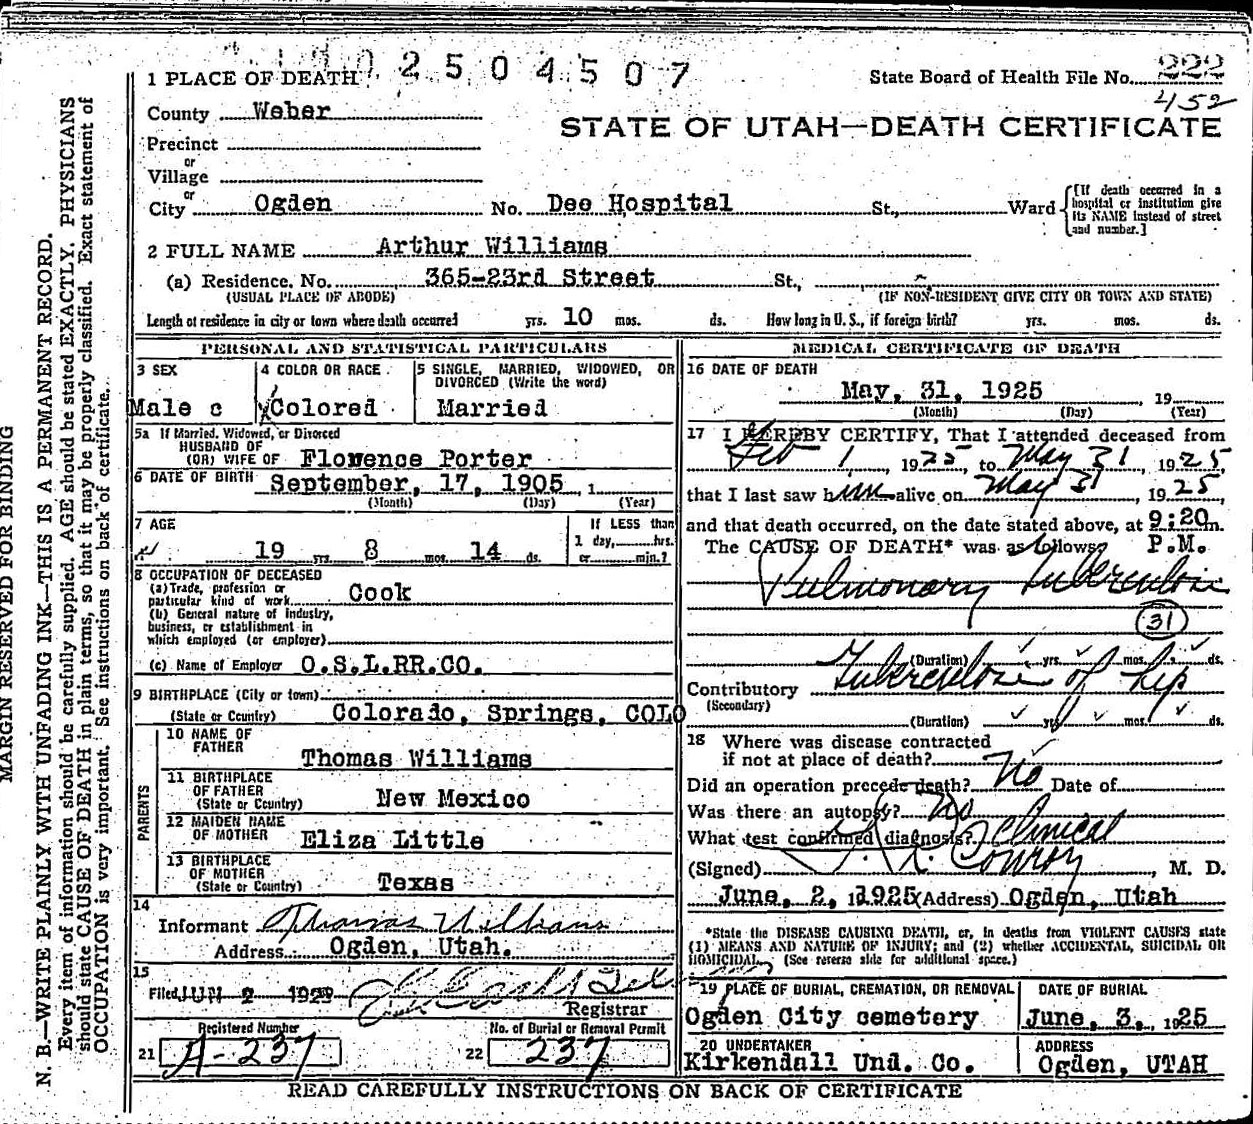 2504507
1 PLACE OF DEATH
State Board of Health File No. 222
452
County Weber
STATE OF UTAH—DEATH CERTIFICATE
Precinct
or
Village
or
City Ogden No. Dee Hospital St., Ward
[If death occurred in a hospital or institution give its NAME instead of street and number.]
2 FULL NAME Arthur Williams
(a) Residence. No. 365-23rd Street St.,
(USUAL PLACE OF ABODE) (IF NON-RESIDENT GIVE CITY OR TOWN AND STATE)
Length of residence in city or town where death occurred yrs. 10 mos. ds. How long in U. S., if foreign birth? yrs. mos. ds.
PERSONAL AND STATISTICAL PARTICULARS
3 SEX
Male c
4 COLOR OR RACE
Colored
5 SINGLE, MARRIED, WIDOWED, OR DIVORCED (Write the word)
Married
5a If Married, Widowed, or Divorced
HUSBAND OF
(OR) WIFE OF Florence Porter
6 DATE OF BIRTH September, 17, 1905, 1
(Month) (Day) (Year)
7 AGE
19 yrs. 8 mos. 14 ds.
If LESS than
1 day, hrs.
or min.?
8 OCCUPATION OF DECEASED
(a) Trade, profession or
particular kind of work Cook
(b) General nature of Industry,
business, or establishment in
which employed (or employer)
(c) Name of Employer O.S.L.RR.CO.
9 BIRTHPLACE (City or town)
(State or Country) Colorado, Springs, COLO
PARENTS
10 NAME OF
FATHER Thomas Williams
11 BIRTHPLACE
OF FATHER
(State or Country) New Mexico
12 MAIDEN NAME
OF MOTHER Eliza Little
13 BIRTHPLACE
OF MOTHER
(State or Country) Texas
14
Informant Thomas Williams
Address Ogden, Utah.
15
Filed JUN 2
Registrar
Registered Number
21 A-237
No. of Burial or Removal Permit
22 237
MEDICAL CERTIFICATE OF DEATH
16 DATE OF DEATH
May, 31, 1925, 19
(Month) (Day) (Year)
17 I HEREBY CERTIFY, That I attended deceased from
Feb 1, 1925, to May 31, 1925,
that I last saw him alive on May 31, 1925
and that death occurred, on the date stated above, at 9:20 m.
P.M.
The CAUSE OF DEATH* was as follows:
Pulmonary tuberculosis
31
(Duration) yrs. mos. ds.
Contributory Tuberculosis of hip
(Secondary)
(Duration) yrs. mos. ds.
18 Where was disease contracted
if not at place of death?
Did an operation precede death? No Date of
Was there an autopsy? No
What test confirmed diagnosis? Clinical
(Signed) Conroy, M. D.
June, 2, 1925 (Address) Ogden, Utah
*State the DISEASE CAUSING DEATH, or, in deaths from VIOLENT CAUSES state
(1) MEANS AND NATURE OF INJURY; and (2) whether ACCIDENTAL, SUICIDAL OR
HOMICIDAL. (See reverse side for additional space.)
19 PLACE OF BURIAL, CREMATION, OR REMOVAL
Ogden City cemetery
DATE OF BURIAL
June, 3, 1925
20 UNDERTAKER
Kirkendall Und. Co.
ADDRESS
Ogden, UTAH
READ CAREFULLY INSTRUCTIONS ON BACK OF CERTIFICATE
MARGIN RESERVED FOR BINDING
N. B.—WRITE PLAINLY WITH UNFADING INK—THIS IS A PERMANENT RECORD.
Every item of information should be carefully supplied. AGE should be stated EXACTLY. PHYSICIANS
should state CAUSE OF DEATH in plain terms, so that it may be properly classified. Exact statement of
OCCUPATION is very important. See instructions on back of certificate.